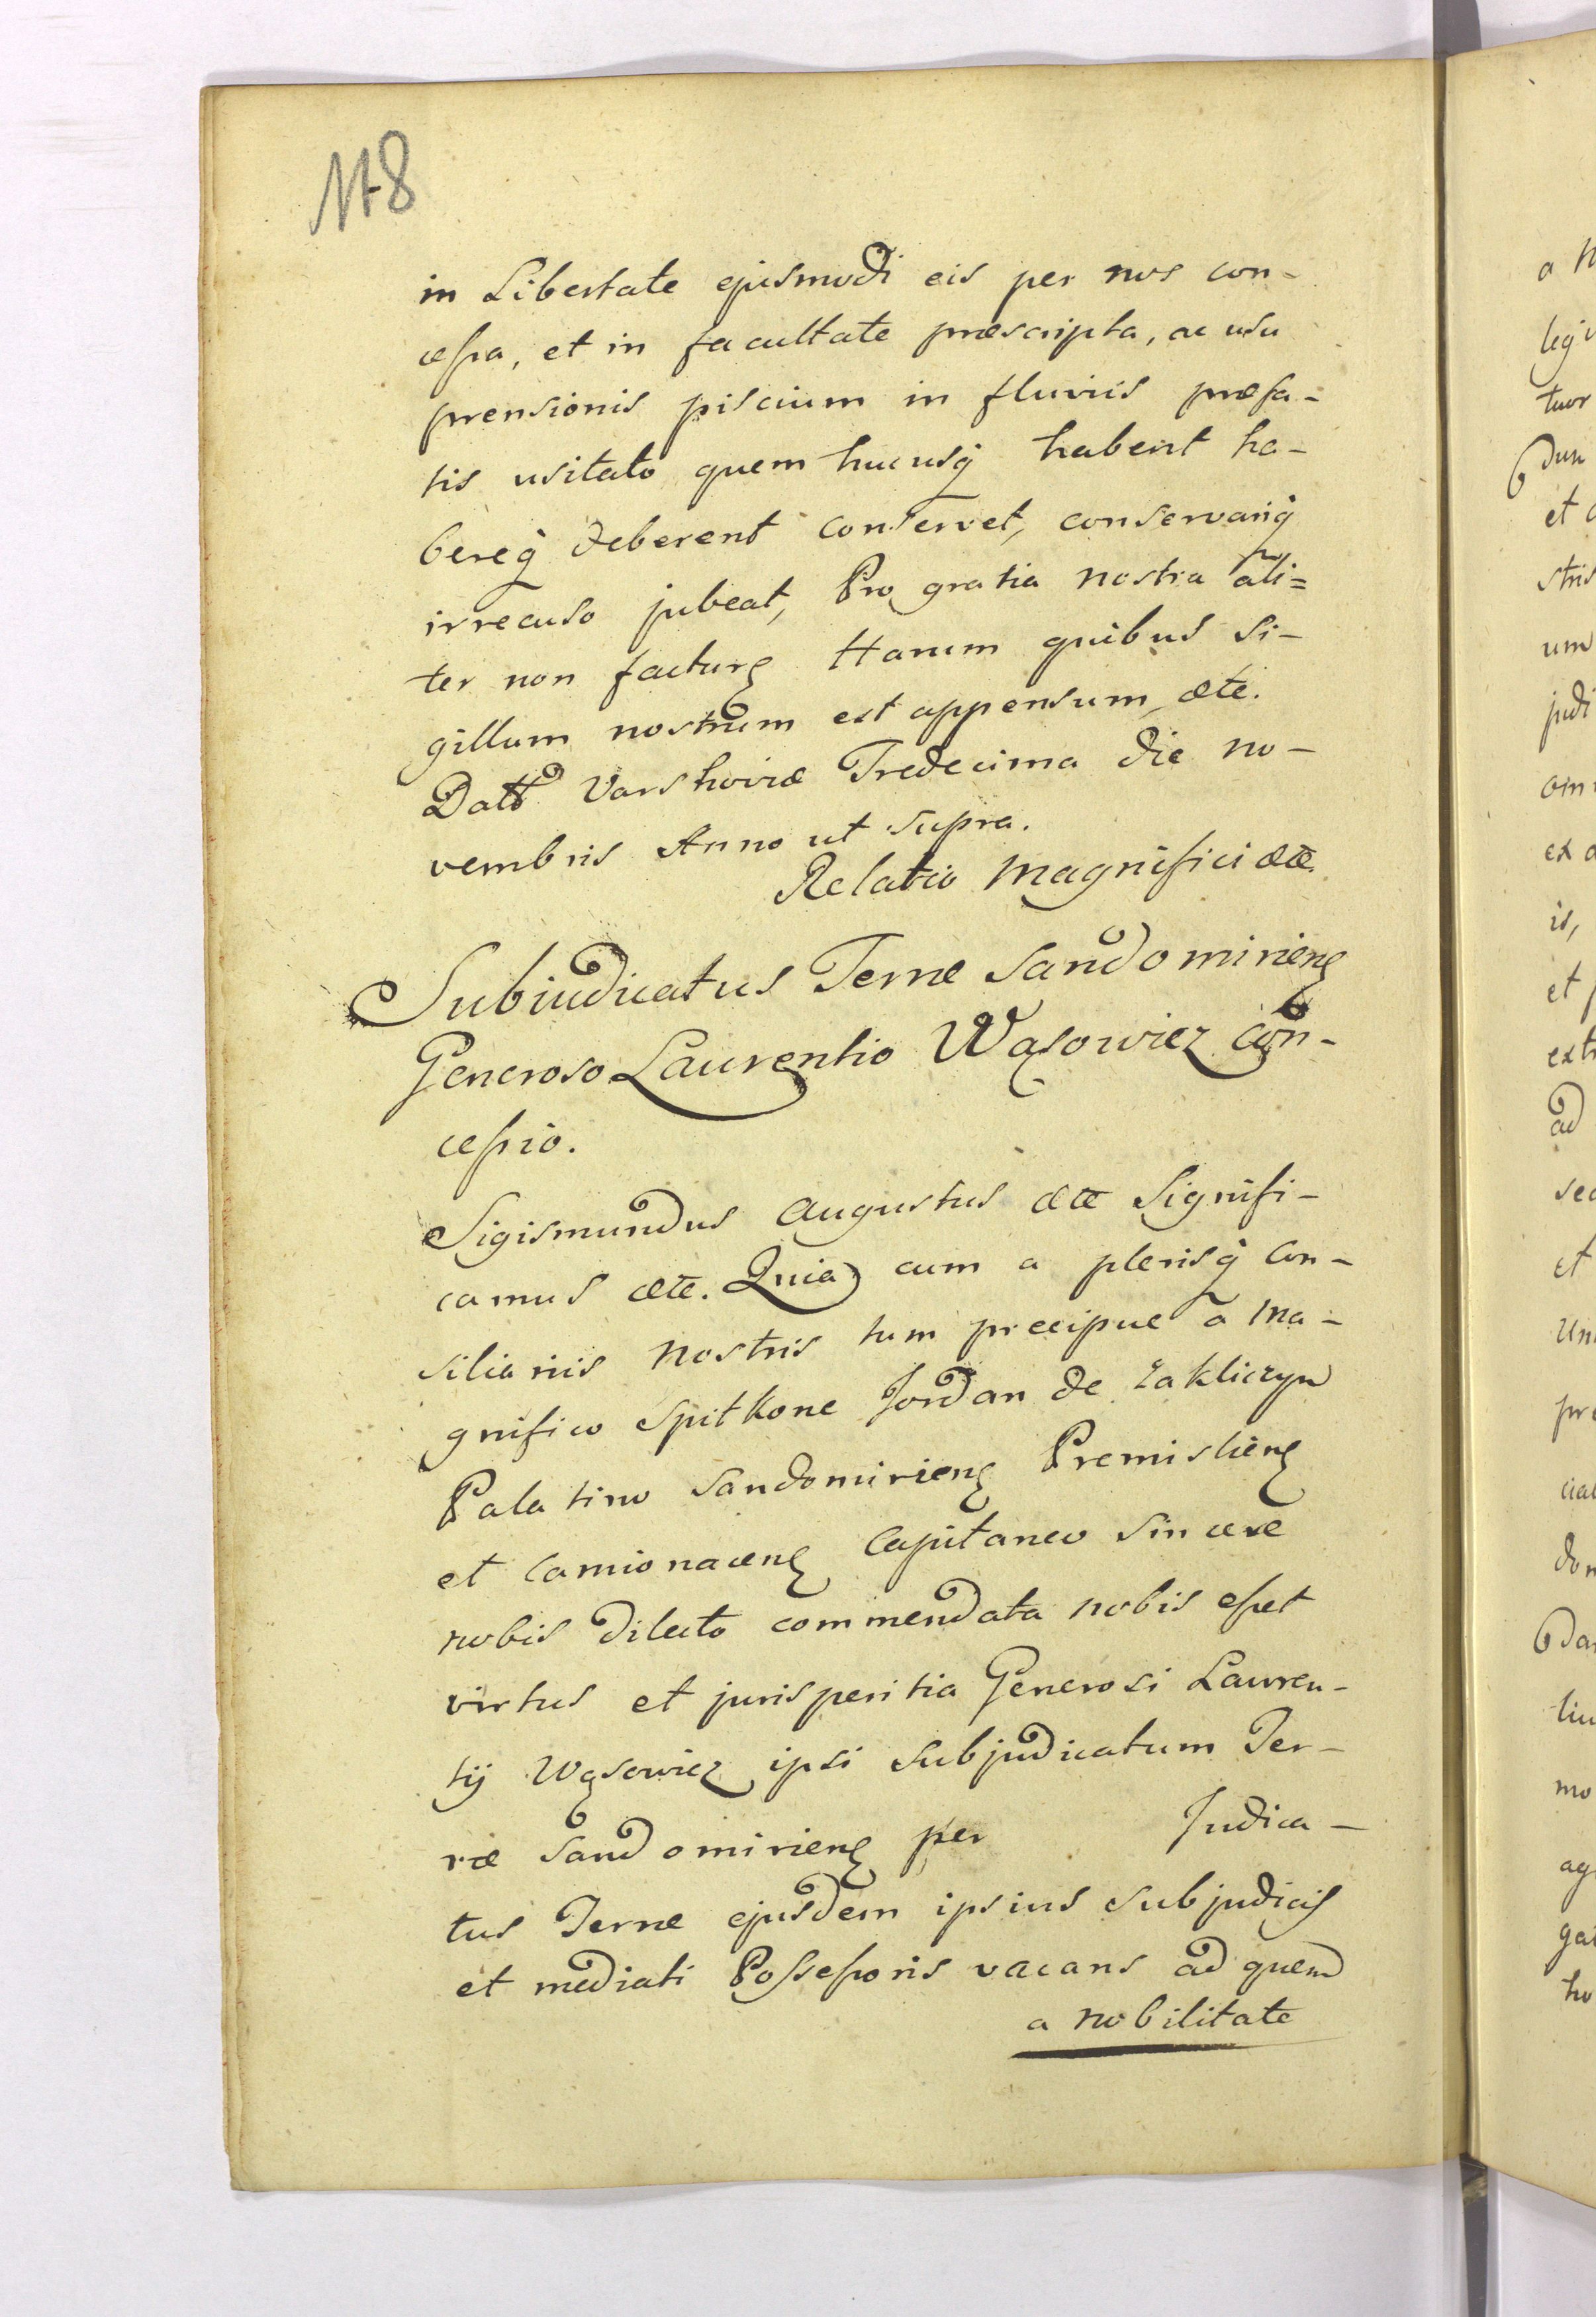 118
in Libertate ejusmodi eis per nos con-
cessa, et in facultate præscripta, ac usu
prensionis piscium in fluviis præfa-
tis usitato quem hucusq́ habent ha-
bereq́ deberent conservet, conservariq́
irrecuso jubeat, Pro gratia nostra ali=
ter non facturę Harum quibus Si-
gillum nostrum est appensum, ætc.
Datt Varshoviæ Tredecima die no-
vembris Anno ut supra.
Relatio Magnifici ætc.
Subiudicatus Terræ Sandomirienę
Generoso Laurentio Wąsowicz con-
cessio.
Sigismundus Augustus ætc Signifi-
camus ætc. Quia cum a plerisq́ Con-
siliariis Nostris tum præcipue a Ma-
gnifico Spitkone Jordan de Zakliczyn
Palatino Sandomirienę Premislienę
et Camionacenę Capitaneo Sincere
nobis dilecto commendata nobis esset
virtus et jurisperitia Generosi Lauren-
tij Wąsowicz ipsi Subjudicatum Ter-
ræ Sandomirienę per Judica-
tus Terræ ejusdem ipsius Subjudicis
et mediati Possessoris vacans ad quem
a nobilitate
a
leg
tuor
dun
et
stris
um
judi
om
ex
is,
et
ext
ad
sec
et
Un
pr
cia
don
da
tiu
mo
ag
ga
ho